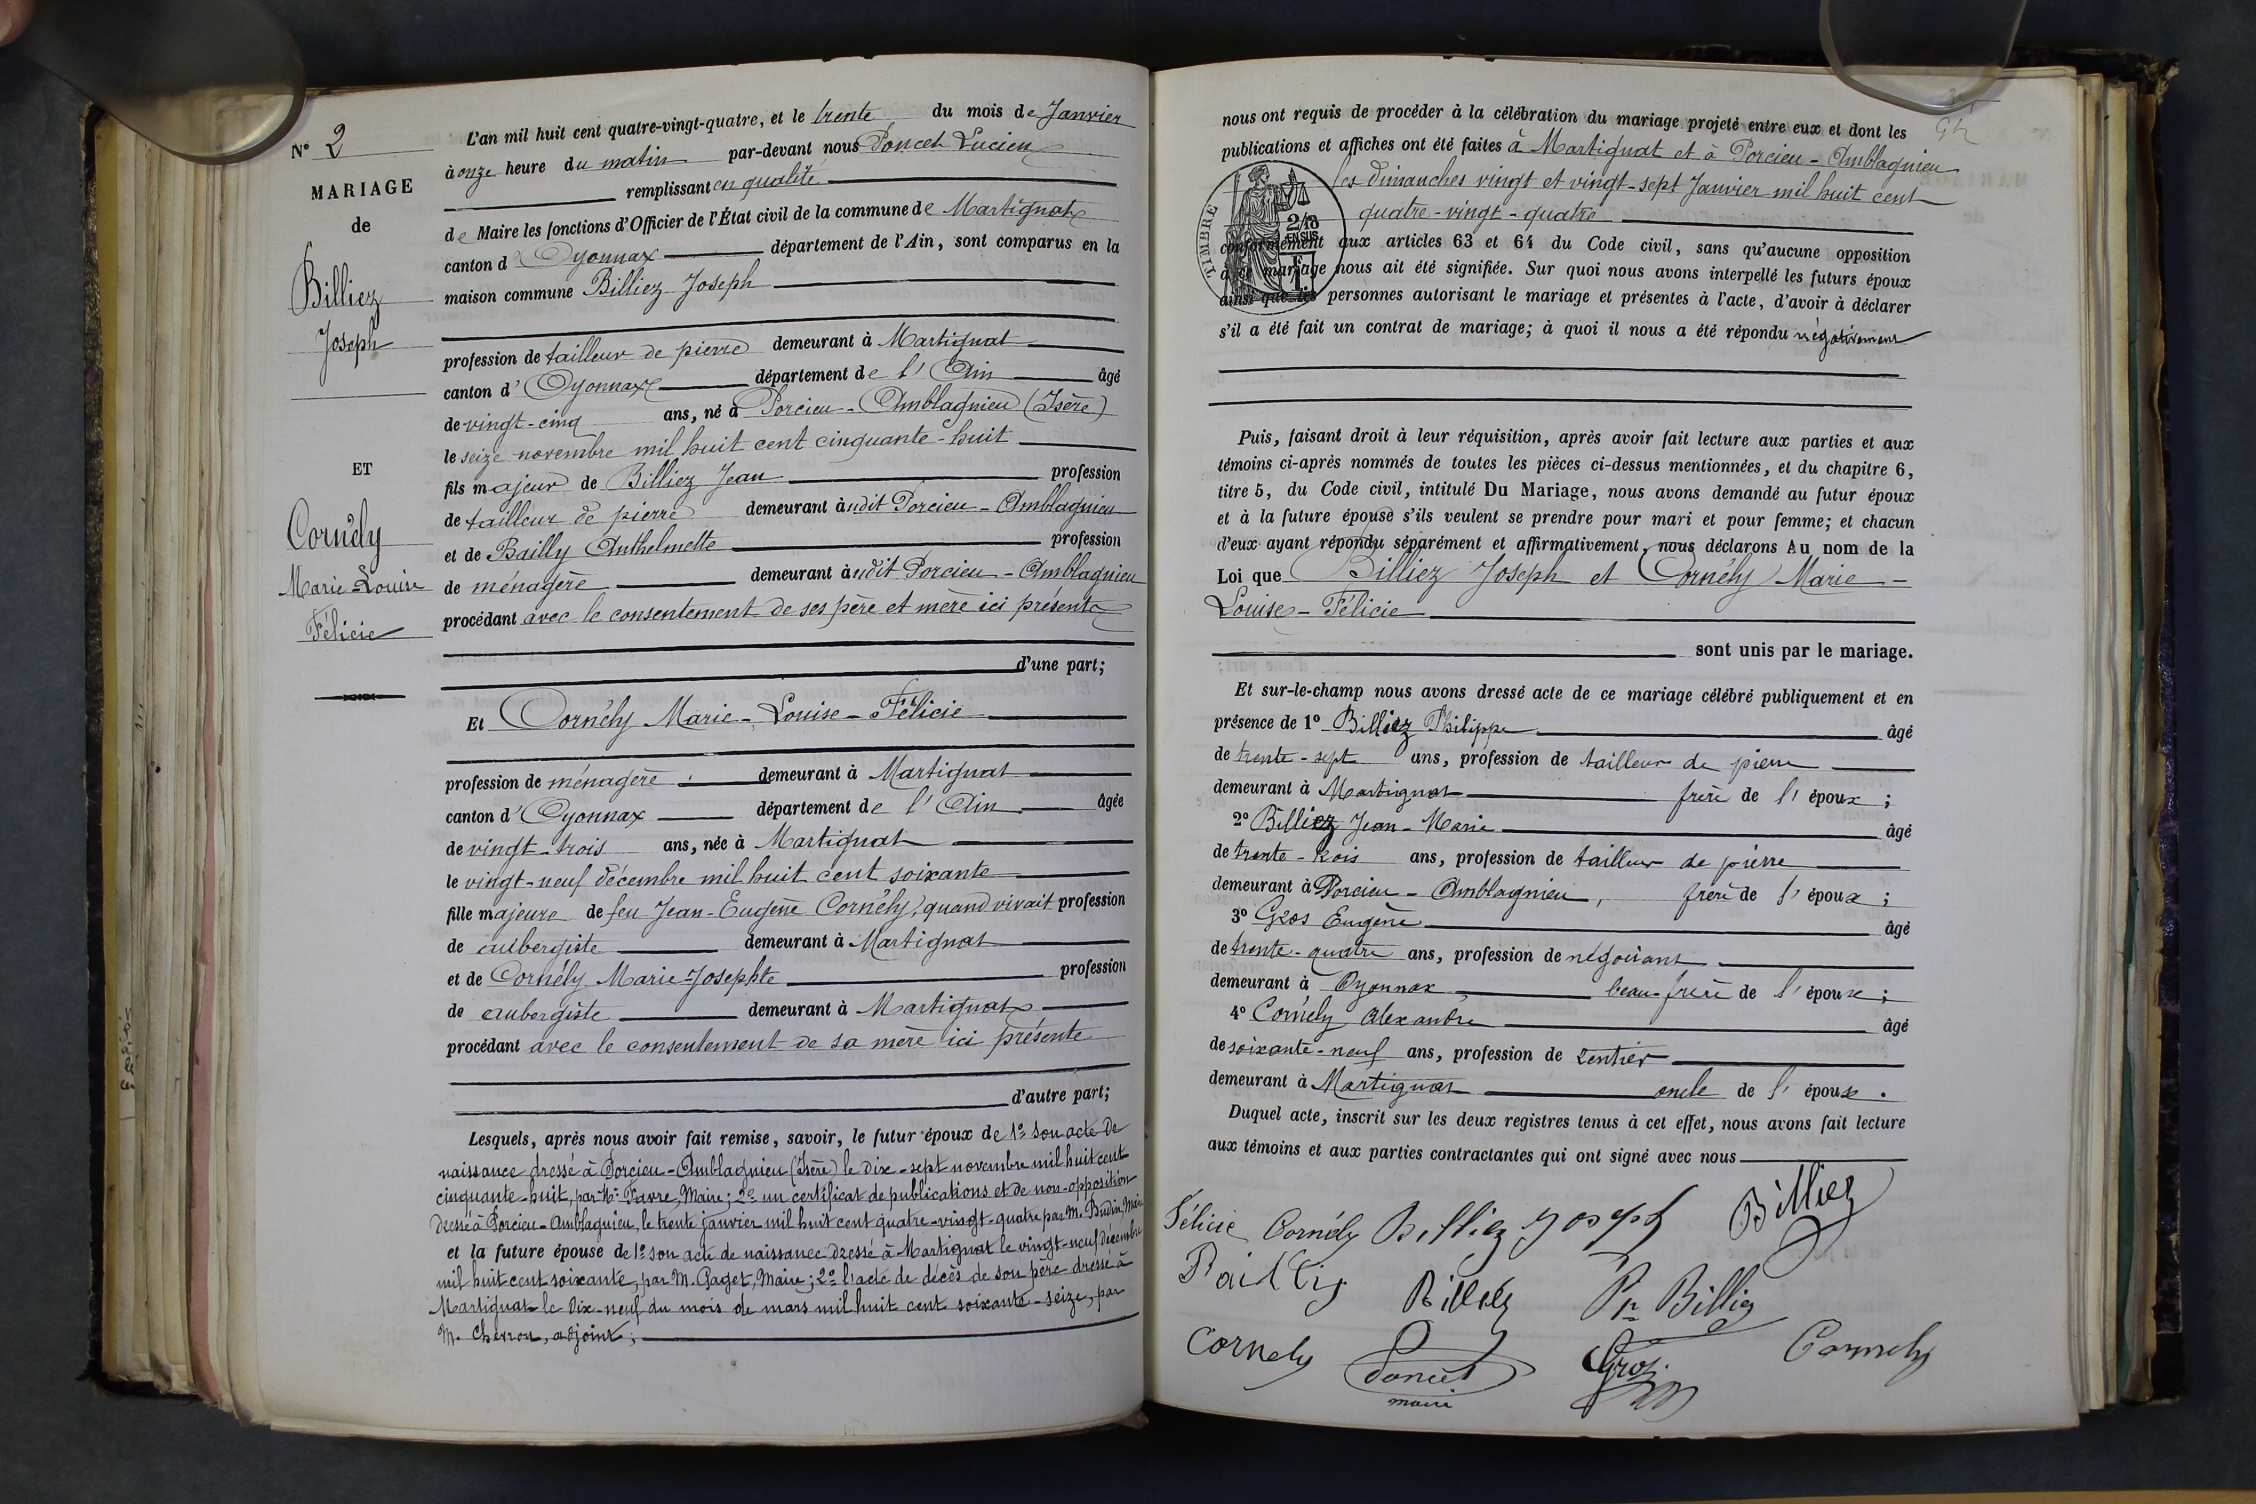 N° 2
MARIAGE
de
Billiez
Joseph
ET
Cornély
Marie-Louise
Félicie
L'an mil huit cent quatre-vingt-quatre, et le trente du mois de Janvier
à onze heure du matin par-devant nous Poncet Lucien
remplissant en qualité
de Maire les fonctions d'Officier de l'État civil de la commune de Martignat
canton d'Oyonnax département de l'Ain, sont comparus en la
maison commune Billiez Joseph
profession de tailleur de pierre demeurant à Martignat
canton d'Oyonnax département de l'Ain âgé
de vingt-cinq ans, né à Porcieu-Amblagnieu (Isère)
le seize novembre mil huit cent cinquante-huit
fils majeur de Billiez Jean profession
de tailleur de pierre demeurant audit Porcieu-Amblagnieu
et de Bailly Anthelmette profession
de ménagère demeurant audit Porcieu-Amblagnieu
procédant avec le consentement de ses père et mère ici présents
d'une part;
Et Cornély Marie-Louise-Félicie
profession de ménagère demeurant à Martignat
canton d'Oyonnax département de l'Ain âgée
de vingt-trois ans, née à Martignat
le vingt-neuf décembre mil huit cent soixante
fille majeure de feu Jean-Eugène Cornély, quand vivait profession
de aubergiste demeurant à Martignat
et de Cornély Marie-Josephte profession
de aubergiste demeurant à Martignat
procédant avec le consentement de sa mère ici présente
d'autre part;
Lesquels, après nous avoir fait remise, savoir, le futur époux de 1° son acte de
naissance dressé à Porcieu-Amblagnieu (Isère) le dix-sept novembre mil huit cent
cinquante-huit, par Mr. Favre, Maire; 2° un certificat de publications et de non-opposition
dressé à Porcieu-Amblagnieu, le trente janvier mil huit cent quatre-vingt-quatre par M. Budin, Maire
et la future épouse de 1° son acte de naissance dressé à Martignat le vingt-neuf décembre
mil huit cent soixante, par M. Paget, Maire; 2° l'acte de décès de son père dressé à
Martignat le dix-neuf du mois de mars mil huit cent soixante-seize, par
M. adjoint;
nous ont requis de procéder à la célébration du mariage projeté entre eux et dont les
publications et affiches ont été faites à Martignat et à Porcieu-Amblagnieu
les dimanches vingt et vingt-sept Janvier mil huit cent
quatre-vingt-quatre
TIMBRE
2/10
EN SUS
conformément aux articles 63 et 64 du Code civil, sans qu'aucune opposition
à ce mariage nous ait été signifiée. Sur quoi nous avons interpellé les futurs époux
ainsi que les personnes autorisant le mariage et présentes à l'acte, d'avoir à déclarer
s'il a été fait un contrat de mariage; à quoi il nous a été répondu négativement
Puis, faisant droit à leur réquisition, après avoir fait lecture aux parties et aux
témoins ci-après nommés de toutes les pièces ci-dessus mentionnées, et du chapitre 6,
titre 5, du Code civil, intitulé Du Mariage, nous avons demandé au futur époux
et à la future épouse s'ils veulent se prendre pour mari et pour femme; et chacun
d'eux ayant répondu séparément et affirmativement, nous déclarons Au nom de la
Loi que Billiez Joseph et Cornély Marie-
Louise-Félicie
sont unis par le mariage.
Et sur-le-champ nous avons dressé acte de ce mariage célébré publiquement et en
présence de 1° Billiez Philippe âgé
de trente-sept ans, profession de tailleur de pierre
demeurant à Martignat frère de l'époux;
2° Billiez Jean-Marie âgé
de trente-trois ans, profession de tailleur de pierre
demeurant à Porcieu-Amblagnieu, frère de l'époux;
3° Gros Eugène âgé
de trente-quatre ans, profession de négociant
demeurant à Oyonnax beau-frère de l'épouse;
4° Cornély Alexandre âgé
de soixante-neuf ans, profession de rentier
demeurant à Martignat oncle de l'épouse.
Duquel acte, inscrit sur les deux registres tenus à cet effet, nous avons fait lecture
aux témoins et aux parties contractantes qui ont signé avec nous
Félicie Cornély Billiez Joseph Billiez
Bailly Billiez Pr Billiez
Cornely Poncet Gros Cornely
maire